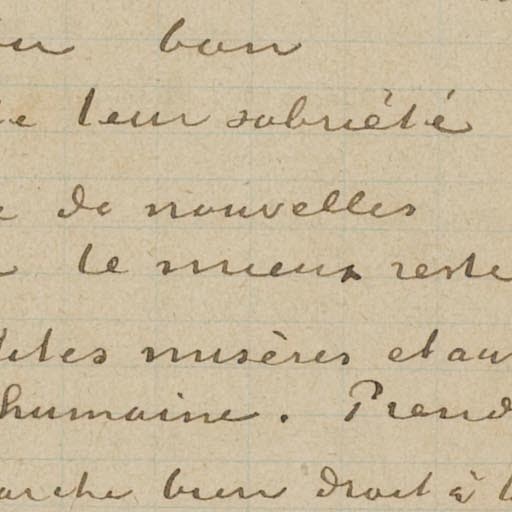 bon
leur sobriété
de nouvelles
le mieux reste
misères et au
humaine. Prend
arche bien droit à